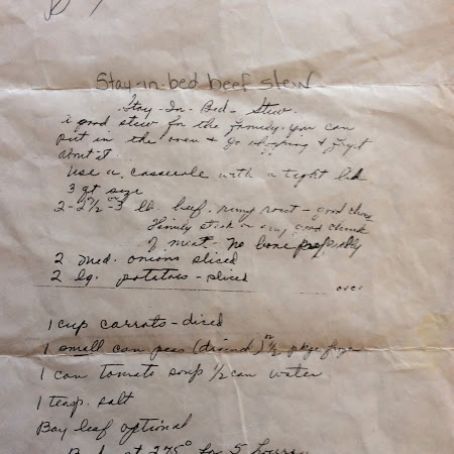 Stay-in-bed beef stew
Stay-In-Bed-Stew.
A good stew for the family. You can
put in the oven & go shopping & forget
about it.
Use a casserole with a tight lid
3 qt size
2-2½ or 3 lb. beef. rump roast - good chuck
steak or any good chunk
of meat - no bone
2 med. onions sliced
2 lg. potatoes - sliced
over
1 cup carrots - diced
1 small can peas (drained) or ½ pkge froze
1 can tomato soup ½ can water
1 teasp. salt
Bay leaf optional
Bake at 275° for 5 hours